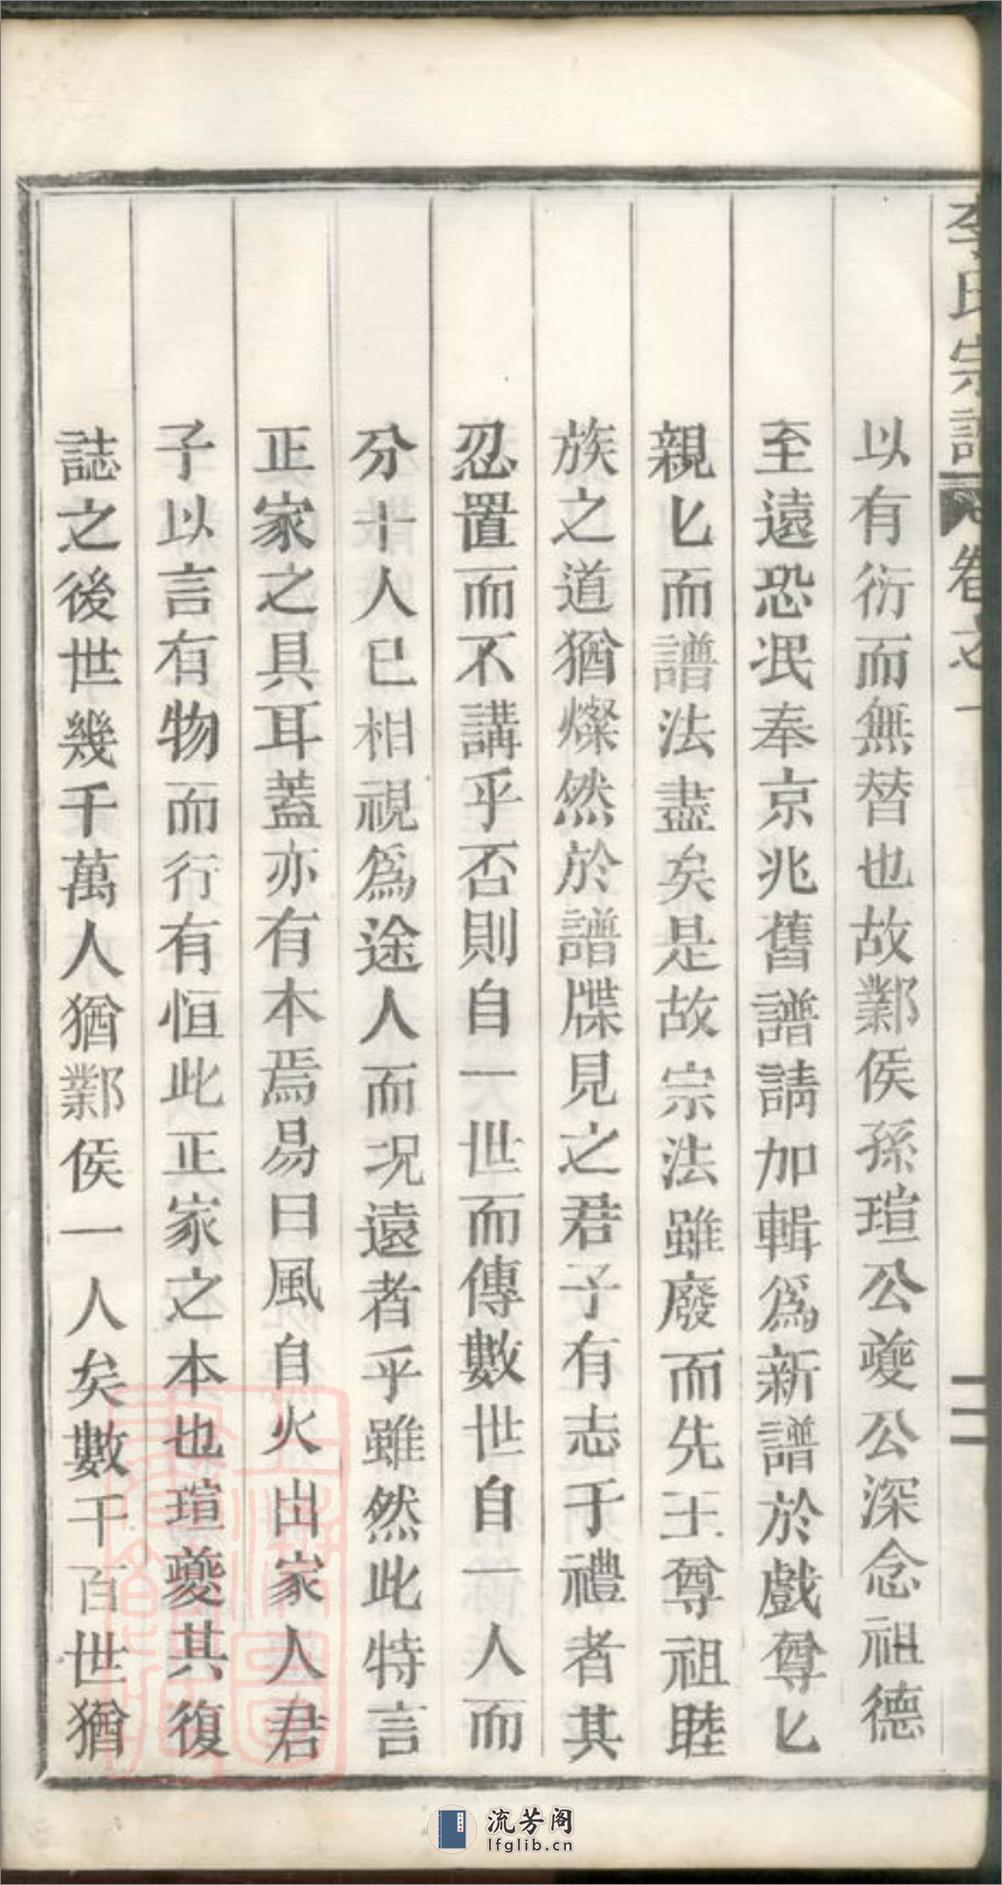 李氏宗譜 卷之一 二
以有衍而無替也故鄴侯孫瑄公夔公深念祖德
至遠恐泯奉京兆舊譜請加輯爲新譜於戲尊匕
親匕而譜法盡矣是故宗法雖廢而先王尊祖睦
族之道猶燦然於譜牒見之君子有志于禮者其
忍置而不講乎否則自一世而傳數世自一人而
分十人已相視爲途人而况遠者乎雖然此特言
正家之具耳蓋亦有本焉易曰風自火出家人君
子以言有物而行有恒此正家之本也瑄夔其復
誌之後世幾千萬人猶鄴侯一人矣數千百世猶
流芳阁
lfglib.cn